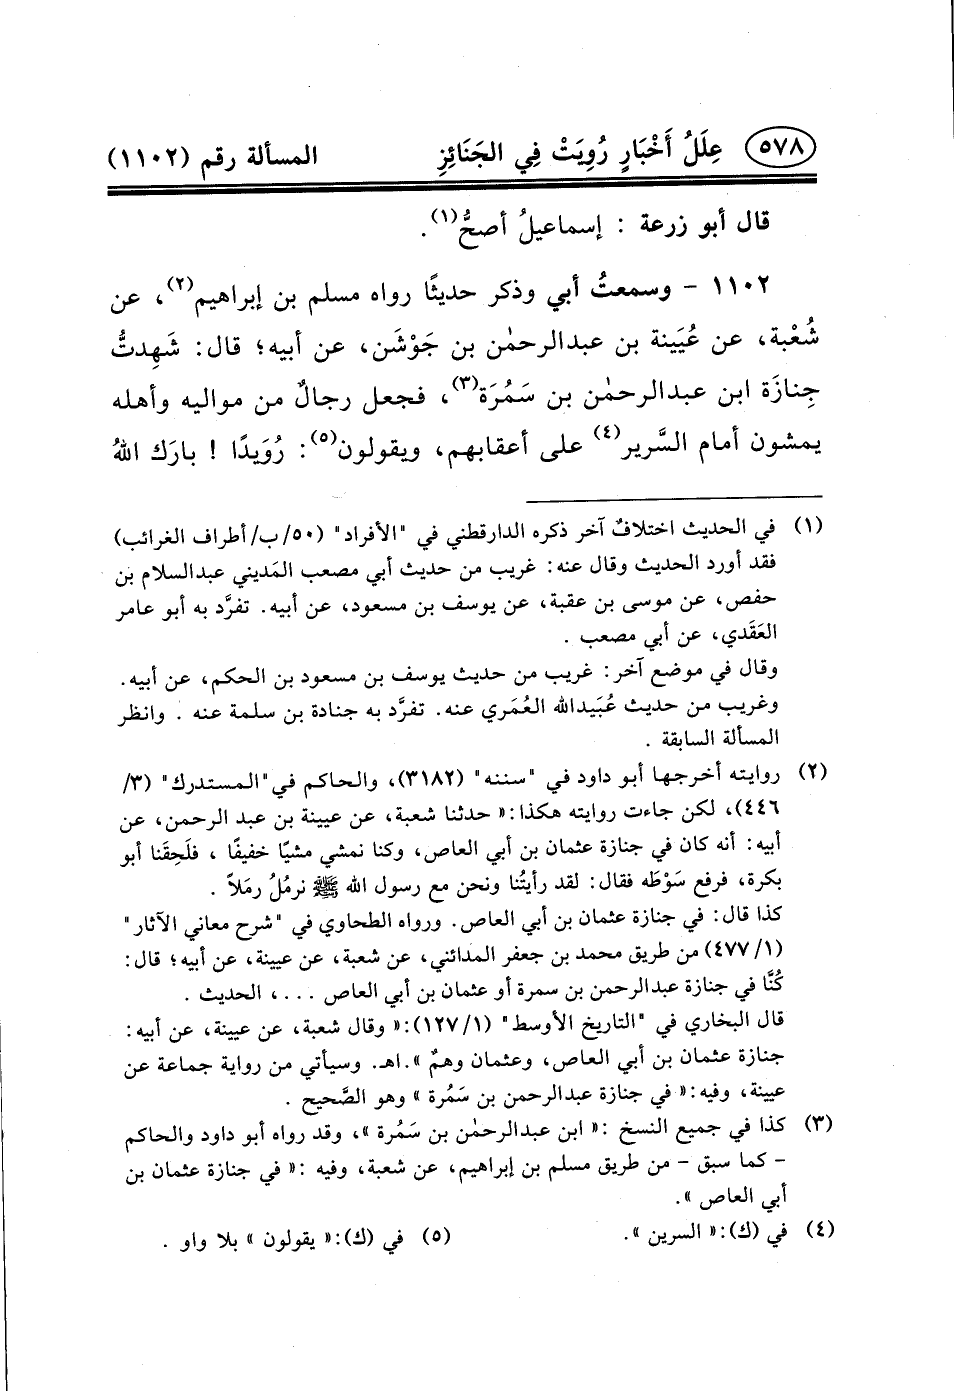 ٥٧٨ عِلَلُ أَخْبَارٍ رُوِيَتْ فِي الجَنَائِزِ المسألة رقم (١١٠٢)
قال أبو زرعة : إسماعيلُ أصحُّ(١).
١١٠٢ - وسمعتُ أبي وذكر حديثًا رواه مسلم بن إبراهيم(٢)، عن
شُعْبة، عن عُيَينة بن عبدالرحمٰن بن جَوْشَن، عن أبيه؛ قال: شَهِدتُّ
جِنازَة ابن عبدالرحمٰن بن سَمُرَة(٣)، فجعل رجالٌ من مواليه وأهله
يمشون أمام السَّرير(٤) على أعقابهم، ويقولون(٥): رُوَيدًا ! بارَك اللهُ
(١) في الحديث اختلافٌ آخر ذكره الدارقطني في "الأفراد" (٥٠/ب/أطراف الغرائب)
فقد أورد الحديث وقال عنه: غريب من حديث أبي مصعب المَديني عبدالسلام بن
حفص، عن موسى بن عقبة، عن يوسف بن مسعود، عن أبيه. تفرَّد به أبو عامر
العَقَدي، عن أبي مصعب .
وقال في موضع آخر: غريب من حديث يوسف بن مسعود بن الحكم، عن أبيه.
وغريب من حديث عُبَيدالله العُمَري عنه. تفرَّد به جنادة بن سلمة عنه . وانظر
المسألة السابقة .
(٢) روايته أخرجها أبو داود في "سننه" (٣١٨٢)، والحاكم في"المستدرك" (٣/
٤٤٦)، لكن جاءت روايته هكذا:« حدثنا شعبة، عن عيينة بن عبد الرحمن، عن
أبيه: أنه كان في جنازة عثمان بن أبي العاص، وكنا نمشي مشيًا خفيفًا ، فلَحِقَنا أبو
بكرة، فرفع سَوْطَه فقال: لقد رأيتُنا ونحن مع رسول الله ﷺ نرمُلُ رمَلاً .
كذا قال: في جنازة عثمان بن أبي العاص. ورواه الطحاوي في "شرح معاني الآثار"
(١/ ٤٧٧) من طريق محمد بن جعفر المدائني، عن شعبة، عن عيينة، عن أبيه؛ قال:
كُنَّا في جنازة عبدالرحمن بن سمرة أو عثمان بن أبي العاص ...، الحديث .
قال البخاري في "التاريخ الأوسط" (١/ ١٢٧):« وقال شعبة، عن عيينة، عن أبيه:
جنازة عثمان بن أبي العاص، وعثمان وهمٌ ».اهـ. وسيأتي من رواية جماعة عن
عيينة، وفيه:« في جنازة عبدالرحمن بن سَمُرة » وهو الصَّحيح .
(٣) كذا في جميع النسخ :« ابن عبدالرحمٰن بن سَمُرة »، وقد رواه أبو داود والحاكم
- كما سبق - من طريق مسلم بن إبراهيم، عن شعبة، وفيه :« في جنازة عثمان بن
أبي العاص ».
(٤) في (ك):« السرين ». (٥) في (ك):« يقولون » بلا واو .